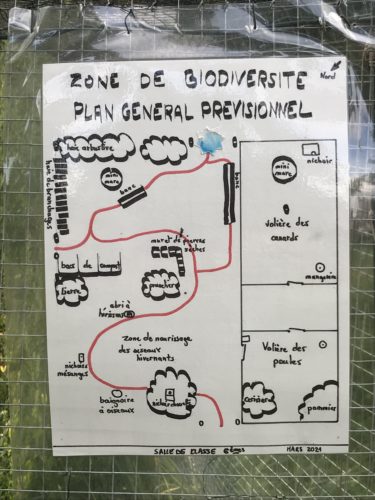 ZONE DE BIODIVERSITE
Nord
PLAN GENERAL PREVISIONNEL
haie arbustive
nichoir
mini
mare
mini
mare
haie de branchages
banc
banc
volière des
canards
muret de pierres
sèches
bacs de compost
mangeoire
lierre
pruniers
abri à
hérissons
zone de nourrissage
des oiseaux
hivernants
Volière des
poules
nichoirs
mésanges
baignoire
à oiseaux
cerisier
pommier
SALLE DE CLASSE 6èmes
MARS 2021